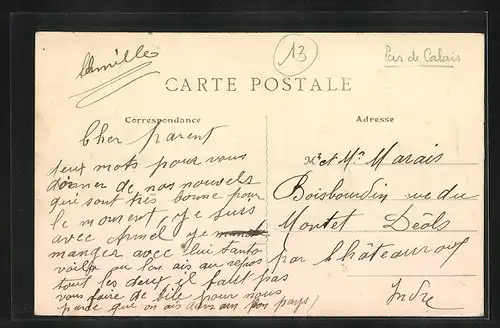 Camille
13
Pas de Calais
CARTE POSTALE
Correspondance
Adresse
Cher parent
deux mots pour vous
donner de nos nouvels
qui sont très bonne pour
le moment, je suis
avec Armel je
manger avec lui tantot
voila on ais au repos
tout les deux il falt pas
vous faire de bile pour nous
parce que on ais dans un bon pays
Mr et Mme Marais
Boisbourdin rue du
Montet Déols
par Châteauroux
Indre